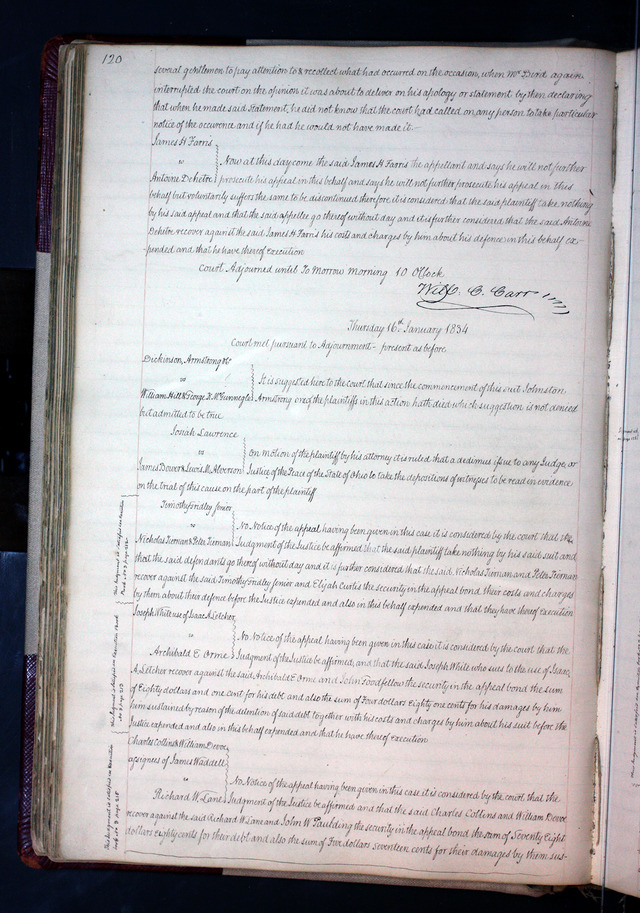 120
several gentlemen to pay attention to & recollect what had occurred on the occasion, when Mr Bird again
interrupted the court on the opinion it was about to deliver on his apology or statement by then declaring
that when he made said Statement, he did not know that the court had called on any person to take particular
notice of the occurence and if he had he would not have made it.—
James H Farns
vs
Now at this day come the said James H Farns the appellant and says he will not further
Antoine Dehetre prosecute his appeal in this behalf and says he will not further prosecute his appeal in this
behalf but voluntarily suffers the same to be discontinued therefore it is considered that the said plaintiff take nothing
by his said appeal and that the said appellee go thereof without day and it is further considered that the said Antoine
Dehetre recover against the said James H Farns his costs and charges by him about his defence in this behalf ex-
-pended and that he have thereof Execution
Court Adjourned until To Morrow Morning 10 OClock
Will. C. Carr
Thursday 16th January 1834
Court met pursuant to Adjournment— present as before
Dickinson, Armstrong &c
vs
It is suggested here to the court that since the commencement of this suit Johnston
William Hill & George K. McGunnegle Armstrong one of the plaintiffs in this action hath died which suggestion is not denied
but admitted to be true
Josiah Lawrence
vs
On motion of the plaintiff by his attorney it is ruled that a dedimus issue to any Judge, or
James Dover & Lewis M. Alverson Justice of the Peace of the State of Ohio to take the depositions of witnesses to be read in evidence
on the trial of this cause on the part of the plaintiff
Timothy Fridley Senior
vs
No Notice of the appeal having been given in this case it is considered by the court that the
Nicholas Tiernan & Peter Tiernan Judgment of the Justice be affirmed that the said plaintiff take nothing by his said suit and
that the said defendants go thereof without day and it is further considered that the said Nicholas Tiernan and Peter Tiernan
recover against the said Timothy Fridley Senior and Elijah Curtis the security in the appeal bond their costs and charges
by them about their defence before the Justice expended and also in this behalf expended and that they have thereof Execution
Joseph White use of Isaac A. Letcher
vs
No Notice of the appeal having been given in this case it is considered by the court that the
Archibald E Orme Judgment of the Justice be affirmed, and that the said Joseph White who sues to the use of Isaac
A. Letcher recover against the said Archibald E Orme and John Goodfellow the security in the appeal bond the sum
of Eighty dollars and one cent for his debt and also the sum of Four dollars Eighty one cents for his damages by him
him sustained by reason of the detention of said debt together with his costs and charges by him about his suit before the
Justice expended and also in this behalf expended and that he have thereof execution
Charles Collins & William Deive
assignees of James Waddell
vs
No Notice of the appeal having been given in this case it is considered by the court that the
Richard W. Lane Judgment of the Justice be affirmed and that the said Charles Collins and William Deive
recover against the said Richard W Lane and John W Paulding the security in the appeal bond the sum of Seventy Eight
dollars Eighty cents for their debt and also the sum of Five dollars Seventeen cents for their damages by them sus-